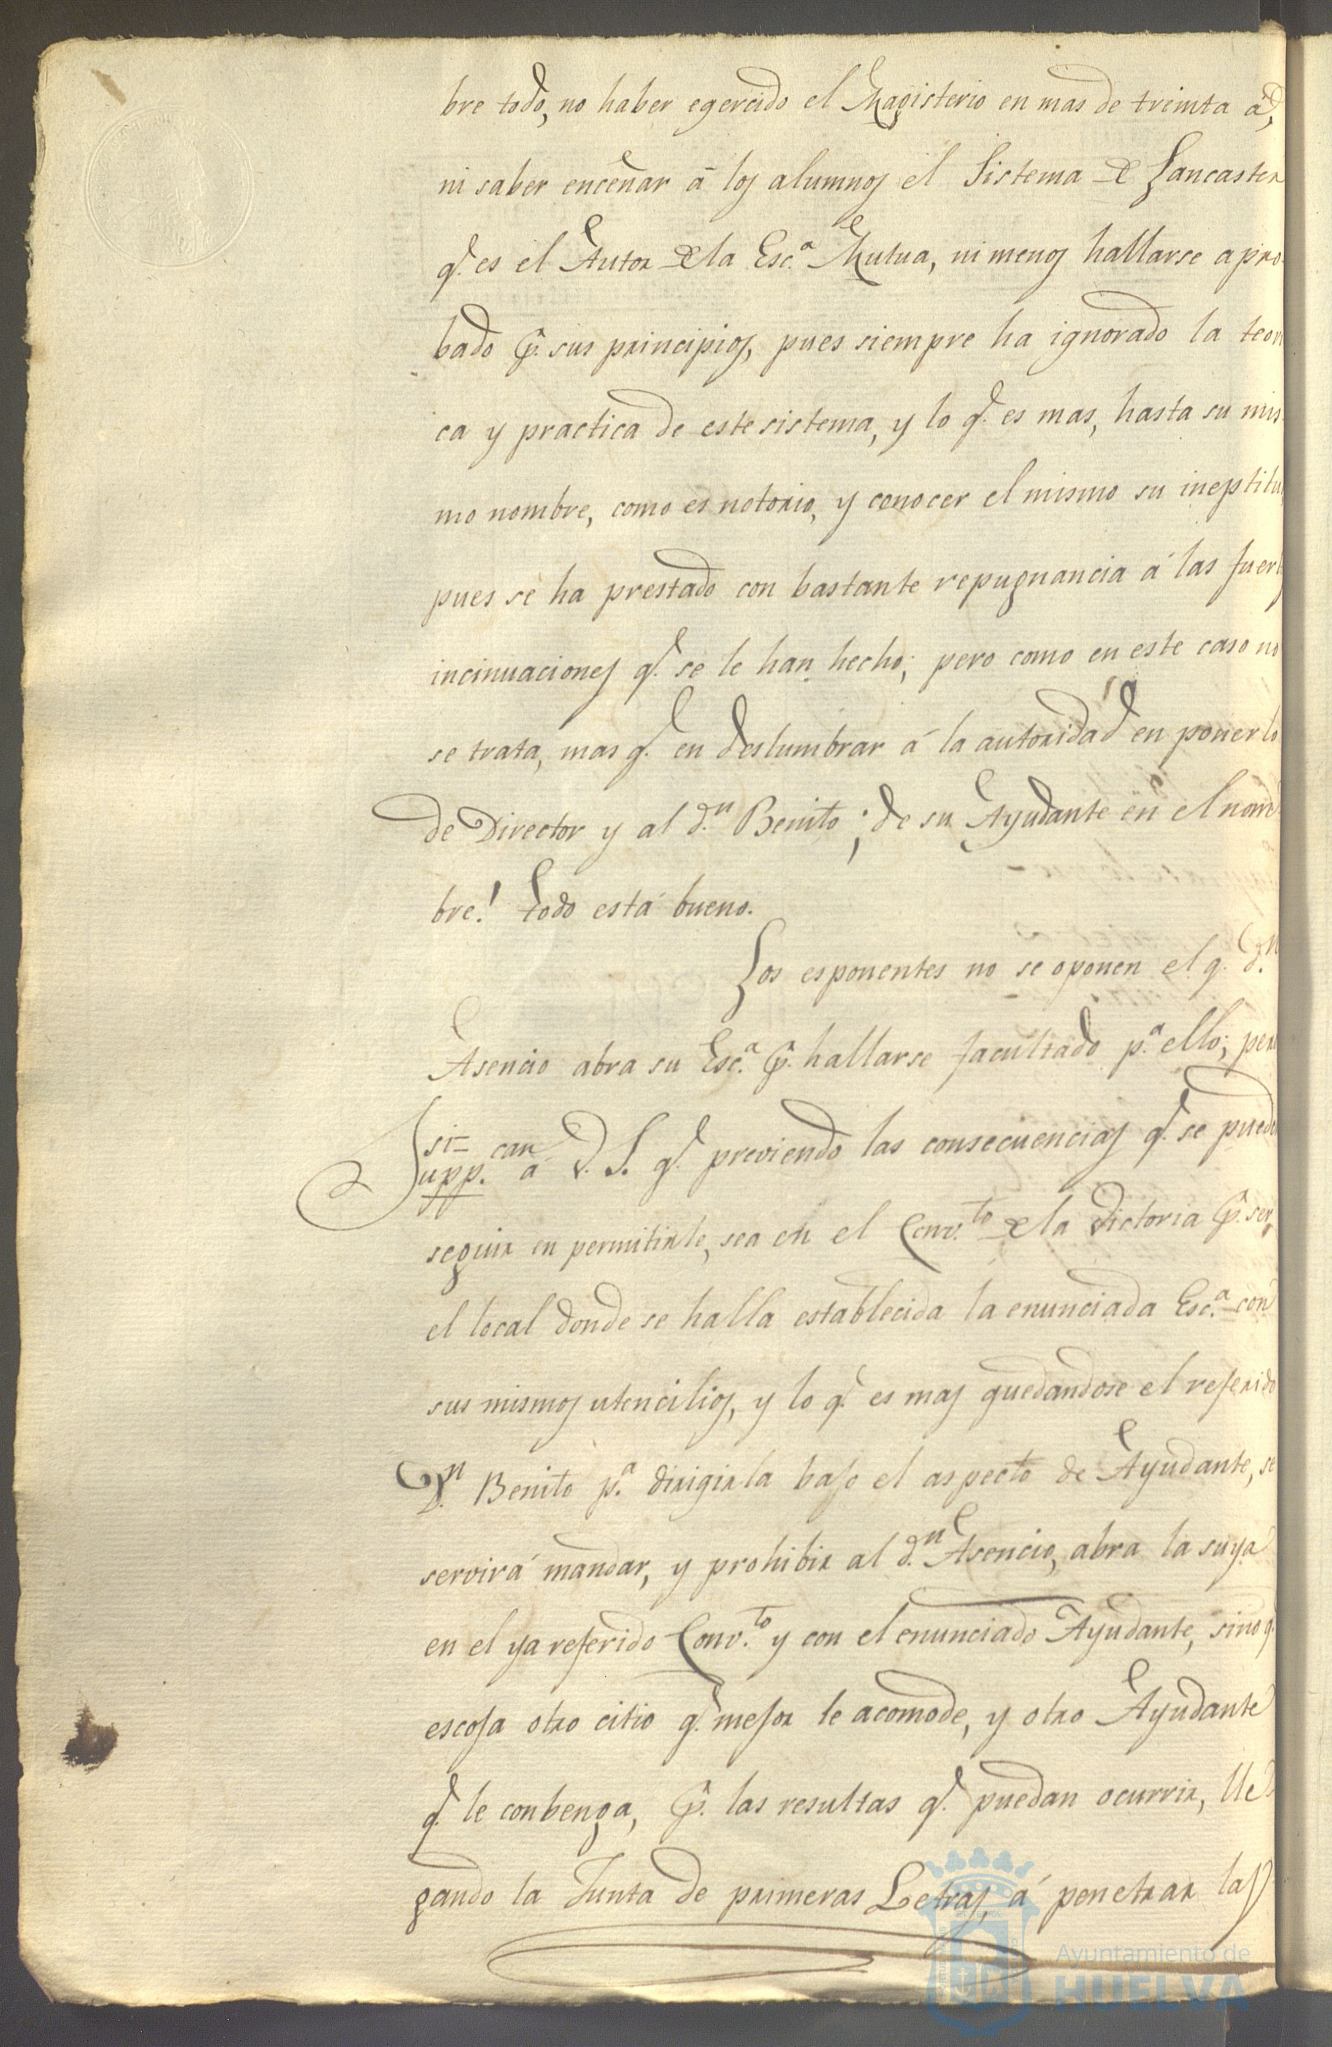 bre todo, no haber egercido el Magisterio en mas de treinta a.s,
ni saber enceñar á los alumnos el Sistema de Lancaster
q.e es el Autor de la Esc.a Mutua, ni menos hallarse apro-
bado p.r sus principios, pues siempre ha ignorado la teori
ca y practica de este sistema, y lo q.e es mas, hasta su mis
mo nombre, como es notorio, y conocer el mismo su ineptitu
pues se ha prestado con bastante repugnancia á las fuert
incinuaciones q.e se le han hecho; pero como en este caso no
se trata, mas q.e en deslumbrar á la autoridad en ponerlo
de Director y al d.n Benito; de su Ayudante en el nom-
bre! todo está bueno.
Los esponentes no se oponen el q.e d.n
Asencio abra su Esc.a p.r hallarse facultado p.a ello; pero
si=
Supp.can á V.S. q.e previendo las consecuencias q.e se puede
seguir en permitirle, sea en el Conv.to de la Victoria p.r ser
el local donde se halla establecida la enunciada Esc.a con
sus mismos utencilios, y lo q.e es mas quedandose el referido
D.n Benito p.a dirigirla bajo el aspecto de Ayudante, se
servirá mandar, y prohibir al d.n Asencio, abra la suya
en el ya referido Conv.to y con el enunciado Ayudante, sino q.e
escoja otro citio q.e mejor le acomode, y otro Ayudante
q.e le conbenga, p.r las resultas q.e puedan ocurrir, lle
gando la Junta de primeras Letras, á penetrar las
Ayuntamiento de
HUELVA